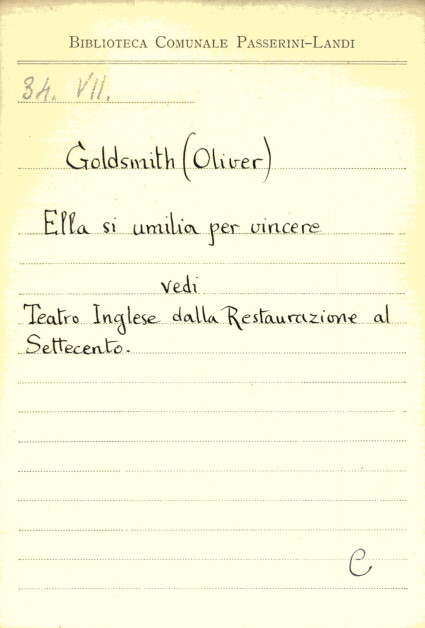 BIBLIOTECA COMUNALE PASSERINI-LANDI
34. VII.
Goldsmith (Oliver)
Ella si umilia per vincere
vedi
Teatro Inglese dalla Restaurazione al
Settecento.
C